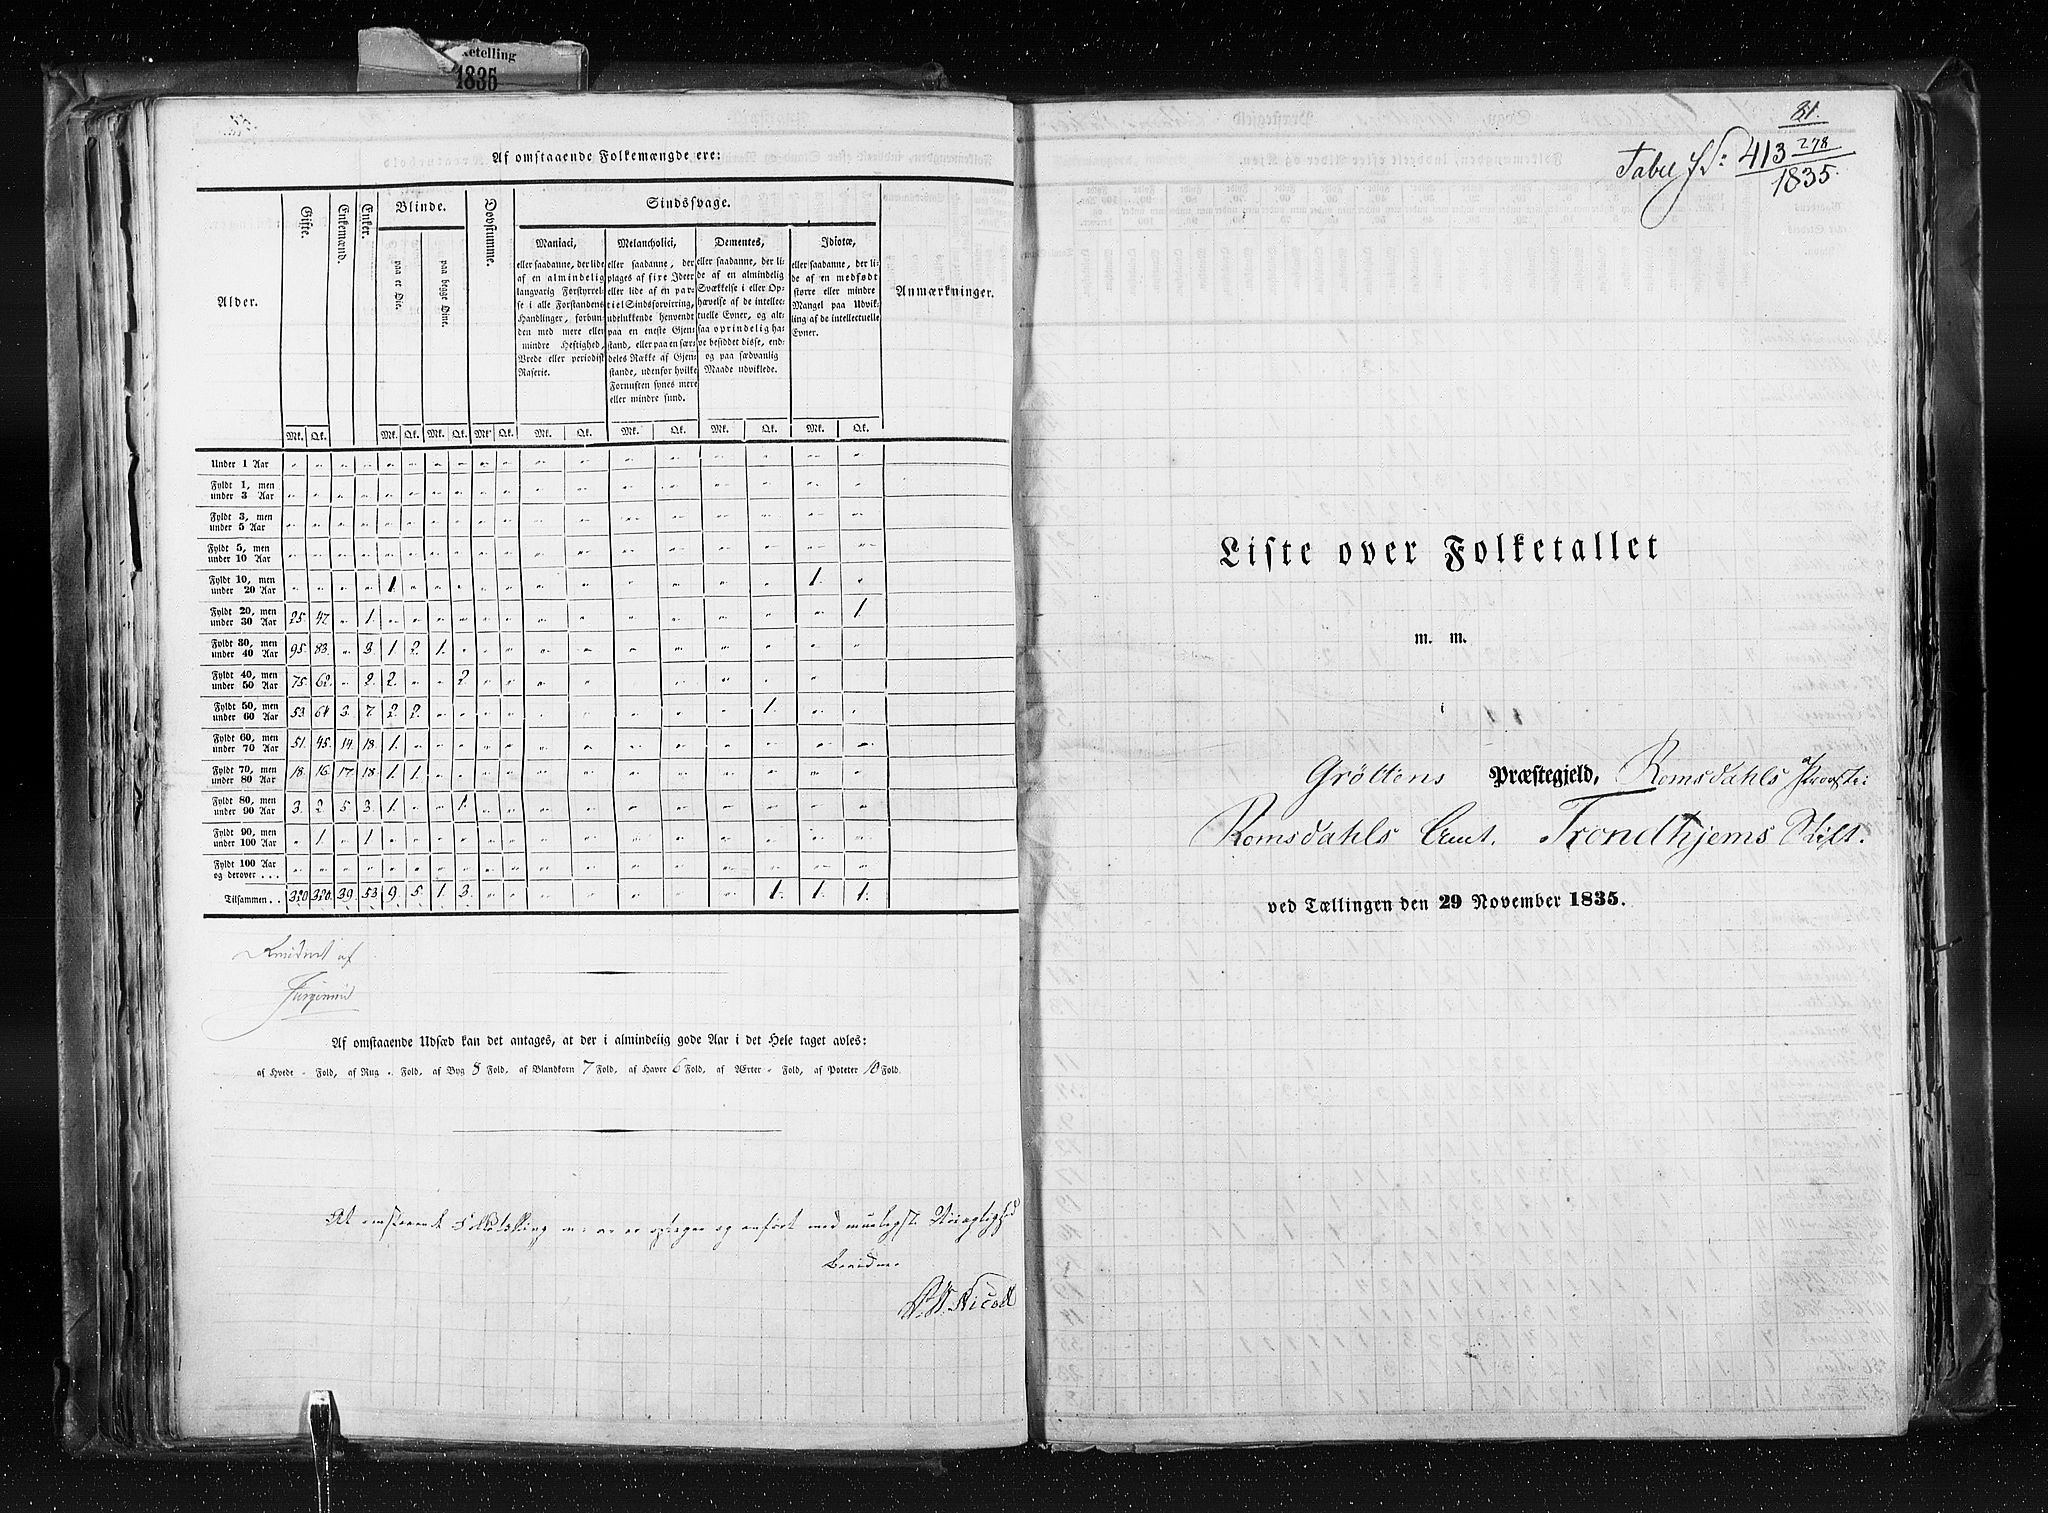 ketelling
1835
Af omstaaende Folkemængde ere:
Alder. Gifte. Enkemænd. Enker. Blinde. Døvstumme. Sindssvage. Anmærkninger.
paa et Øie. paa begge Øine.
Maniaci,
eller saadanne, der lide
af en almindelig
langvarig Forstyrrel-
se i alle Forstandens
Handlinger, forbun-
den med mere eller
mindre Heftighed,
Vrede eller periodisk
Raserie.
Melancholici,
eller saadanne, der
plages af fixe Ideer
eller lide af en par-
tiel Sindsforvirring,
udelukkende henvendt
paa en eneste Gjen-
stand, eller paa en sær-
deles Række af Gjen-
stande, udenfor hvilke
Fornuften synes mere
eller mindre sund.
Dementes,
eller saadanne, der li-
de af en almindelig
Svækkelse i eller Op-
hævelse af de intellec-
tuelle Evner, og alt-
saa oprindelig ha-
ve besiddet disse, end-
og paa sædvanlig
Maade udviklede.
Idiotæ,
eller saadanne, der li-
de af en medfødt
større eller mindre
Mangel paa Udvik-
ling af de intellectuelle
Evner.
Mk. Qk. Mk. Qk. Mk. Qk. Mk Qk. Mk. Qk. Mk. Qk. Mk. Qk. Mk. Qk.
Under 1 Aar " " " " " " " " " " " " " " " " " "
Fyldt 1, men
under 3 Aar " " " " " " " " " " " " " " " " " "
Fyldt 3, men
under 5 Aar " " " " " " " " " " " " " " " " " "
Fyldt 5, men
under 10 Aar " " " " " " " " " " " " " " " " " "
Fyldt 10, men
under 20 Aar " " " " 1. " " " " " " " " " " " 1. "
Fyldt 20, men
under 30 Aar 25. 47. " 1. " " " " " " " " " " " " " 1.
Fyldt 30, men
under 40 Aar 95. 83. " 3. 1. 2. 1. " " " " " " " " " " "
Fyldt 40, men
under 50 Aar 75. 62. " 2. 2. " " 2. " " " " " " " "
Fyldt 50, men
under 60 Aar 53. 64. 3. 7. 2. 2. " " " " " " " " " 1. " "
Fyldt 60, men
under 70 Aar 51. 45. 14. 18. 1. " " " " " " " " " " " " "
Fyldt 70, men
under 80 Aar 18. 16. 17. 18. 1. 1. " " " " " " " " " " " "
Fyldt 80, men
under 90 Aar 3. 2. 5. 3. 1. " " 1. " " " " " " " " " "
Fyldt 90, men
under 100 Aar " 1. " 1. " " " " " " " " " " " " " "
Fyldt 100 Aar
og derover . . . " " " " " " " " " " " " " " " " " "
Tilsammen . . 320 320. 39. 53. 9. 5. 1. 3. " " " " " " " 1. 1. 1.
af
Af omstaaende Udsæd kan det antages, at der i almindelig gode Aar i det Hele taget avles:
af Hvede " Fold, af Rug " Fold, af Byg 8 Fold, af Blandkorn 7 Fold, af Havre 6 Fold, af Ærter " Fold, af Poteter 10 Fold.
At omstaaende Folketælling er optagen og anført med muligste Nöiagtighed
Bevidnes
81.
413 278
1835.
Liste over Folketallet
m. m.
i
Gröttens Præstegjeld, Romsdahls Provstie
Romsdahls Amt. Trondhjems Stift.
ved Tællingen den 29 November 1835.